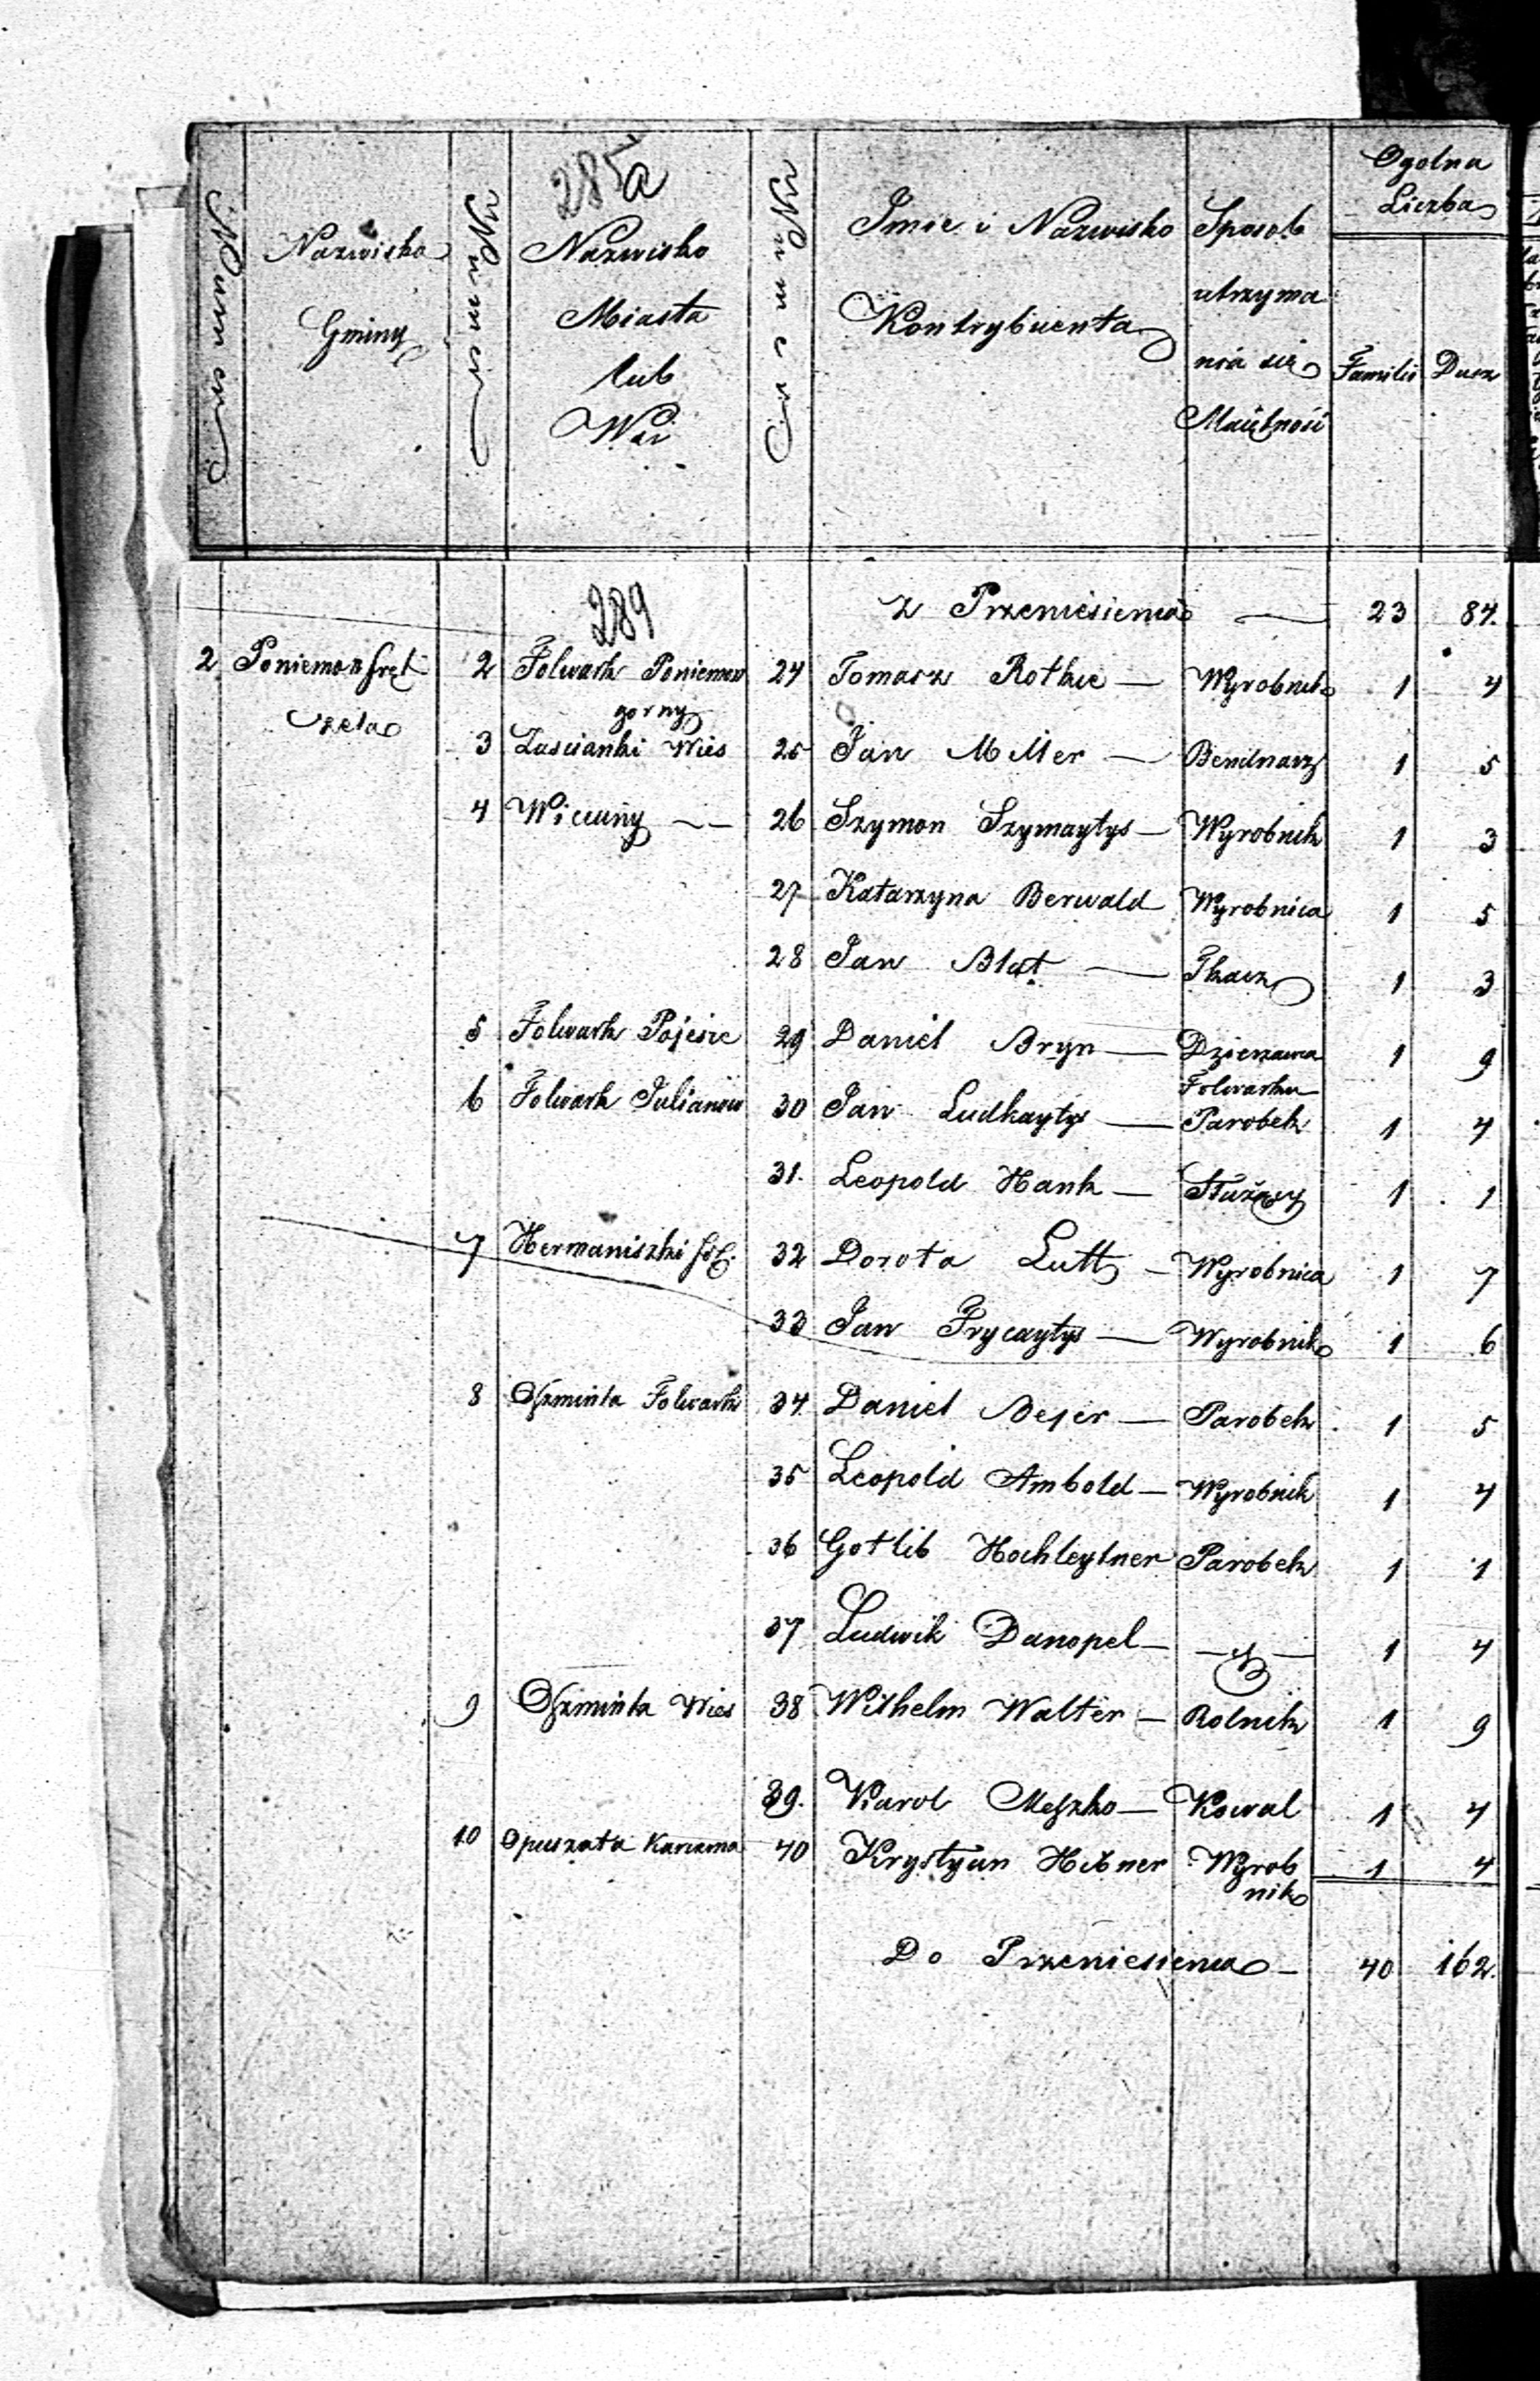 285a
Numer | Nazwisko Gminy | Numer | Nazwisko Miasta lub Wsi | Numer | Imie i Nazwisko Kontrybuenta | Sposob utrzyma nia sie Maiętnosci | Ogolna Liczba Familii | Dusz
289
z Przeniesienia — 23 84.
2 Poniemoń fręt 2 Folwark Poniemoń 24 Tomasz Rothe — Wyrobnik 1 4
czela gorny
3 Zascianki Wies 25 Jan Miller — Bendnarz 1 5
4 Wiciuny — — 26 Szymon Szymaytys — Wyrobnik 1 3
27 Katarzyna Berwald Wyrobnica 1 5
28 Jan Blat — Tkacz 1 3
5 Folwark Pojesie 29 Daniel Bryn — Dzierzawca 1 9
Folwarku
6 Folwark Julianow 30 Jan Ludkaytys — Parobek 1 4
31. Leopold Hank — Służący 1 1
7 Hermaniszki fol. 32 Dorota Lutt — Wyrobnica 1 7
33 Jan Frycaytys — Wyrobnik 1 6
8 Oszminta Folwark 34 Daniel Bejer — Parobek 1 5
35 Leopold Ambold — Wyrobnik 1 4
36 Gotlib Hochleytner Parobek 1 1
37 Ludwik Danopel — — 1 4
9 Oszminta Wies 38 Wilhelm Walter — Rolnik 1 9
39. Karol Meszko — Kowal 1 4
10 Opuszata Karczma 40 Krystyan Hibner Wyrob 1 4
nik
Do Przeniesienia — 40 162.